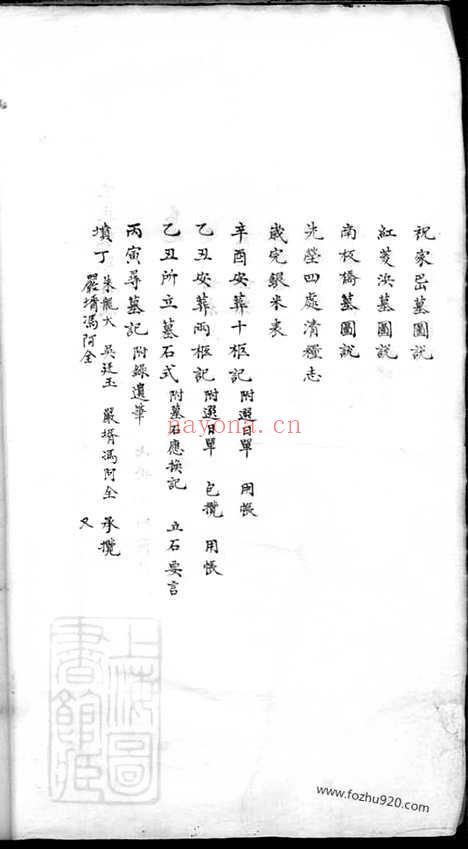 祝家㘭墓圖說
紅菱浜墓圖說
南板橋墓圖說
先塋四處清糧志
歲完銀米表
辛酉安葬十柩記 附選日單 用帳
乙丑安葬兩柩記 附選日單 包攬 用帳
乙丑所立墓石式 附墓石應換記 立石要言
丙寅尋墓記 附錄遺筆
墳丁 朱龍大 吳廷玉 嚴壻馮阿全 承攬
嚴壻馮阿全 又
上海圖書館藏
nayona.cn
www.fozhu920.com